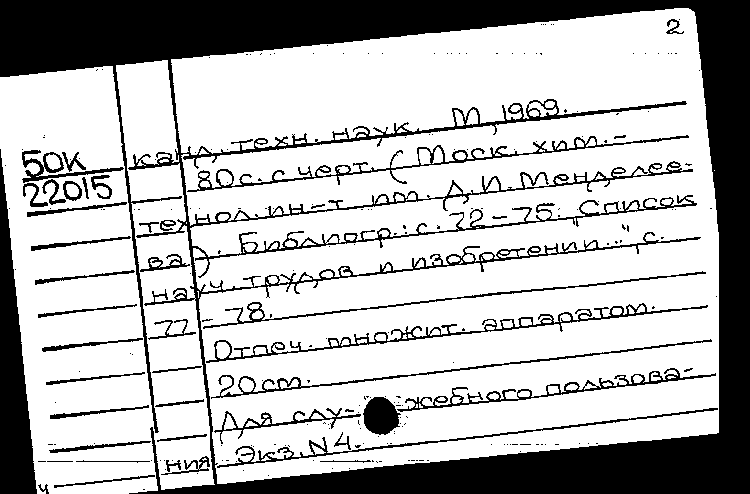 2
50К
22015
канд. техн. наук. М., 1969.
80с. с черт. (Моск. хим.-
технол. ин-т им. Д.И. Менделее-
ва). Библиогр.: с. 72-75. "Список
науч. трудов и изобретений..", с.
77-78.
Отпеч. множит. аппаратом.
20см.
Для слу-жебного пользова-
ния. Экз. N4.
ч